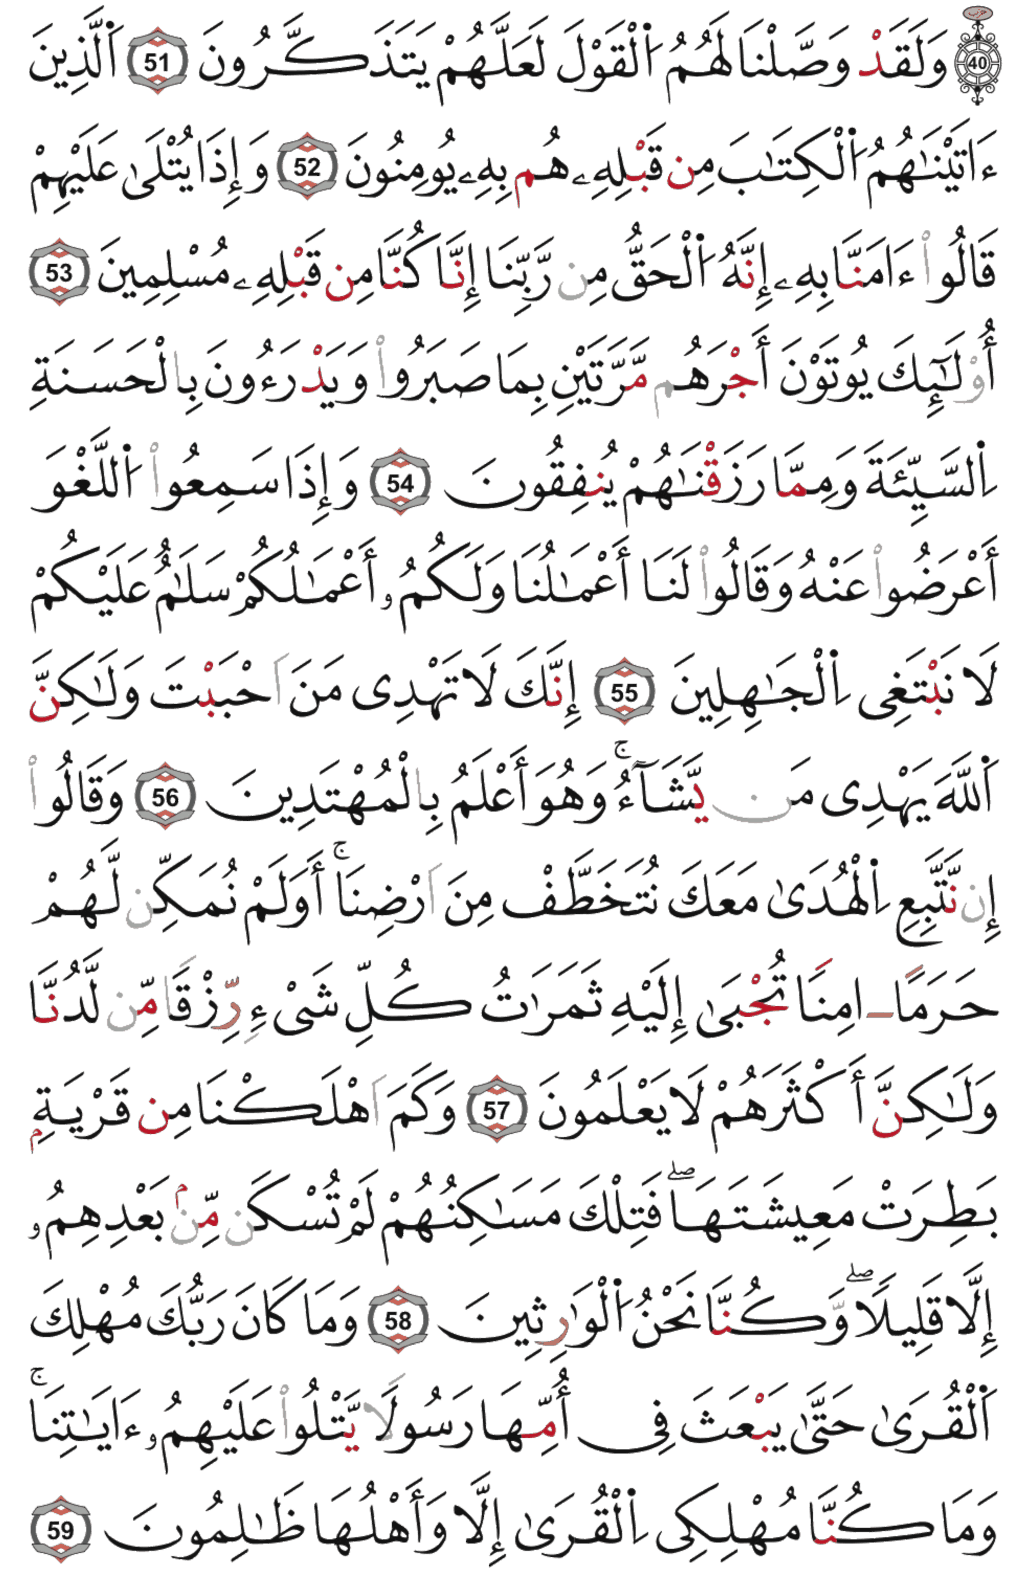 حزب 40 وَلَقَدْ وَصَّلْنَا لَهُمُ اُ۬لْقَوْلَ لَعَلَّهُمْ يَتَذَكَّرُونَ 51 اَ۬لَّذِينَ
ءَاتَيْنَٰهُمُ اُ۬لْكِتَٰبَ مِن قَبْلِهِۦ هُم بِهِۦ يُومِنُونَ 52 وَإِذَا يُتْلَىٰ عَلَيْهِمْ
قَالُوٓاْ ءَامَنَّا بِهِۦ إِنَّهُ اُ۬لْحَقُّ مِن رَّبِّنَا إِنَّا كُنَّا مِن قَبْلِهِۦ مُسْلِمِينَ 53
أُوْلَٰٓئِكَ يُوتَوْنَ أَجْرَهُم مَّرَّتَيْنِ بِمَا صَبَرُواْ وَيَدْرَءُونَ بِالْحَسَنَةِ
اِ۬لسَّيِّئَةَ وَمِمَّا رَزَقْنَٰهُمْ يُنفِقُونَ 54 وَإِذَا سَمِعُواْ اُ۬للَّغْوَ
أَعْرَضُواْ عَنْهُ وَقَالُواْ لَنَا أَعْمَٰلُنَا وَلَكُمُۥ أَعْمَٰلُكُمْ سَلَٰمٌ عَلَيْكُمْ
لَا نَبْتَغِى اِ۬لْجَٰهِلِينَ 55 إِنَّكَ لَا تَهْدِى مَنَ احْبَبْتَ وَلَٰكِنَّ
اَ۬للَّهَ يَهْدِى مَن يَّشَآءُۚ وَهُوَ أَعْلَمُ بِالْمُهْتَدِينَ 56 وَقَالُواْ
إِن نَّتَّبِعِ اِ۬لْهُدَىٰ مَعَكَ نُتَخَطَّفْ مِنَ ارْضِنَاۚ أَوَلَمْ نُمَكِّن لَّهُمْ
حَرَمًا امِنًا تُجْبَىٰ إِلَيْهِ ثَمَرَٰتُ كُلِّ شَىْءٍ رِّزْقًا مِّن لَّدُنَّا
وَلَٰكِنَّ أَكْثَرَهُمْ لَا يَعْلَمُونَ 57 وَكَمَ اهْلَكْنَا مِن قَرْيَةِۢ
بَطِرَتْ مَعِيشَتَهَاۖ فَتِلْكَ مَسَٰكِنُهُمْ لَمْ تُسْكَن مِّنۢ بَعْدِهِمُۥ
إِلَّا قَلِيلًاۖ وَّكُنَّا نَحْنُ اُ۬لْوَٰرِثِينَ 58 وَمَا كَانَ رَبُّكَ مُهْلِكَ
اَ۬لْقُرَىٰ حَتَّىٰ يَبْعَثَ فِى أُمِّهَا رَسُولًا يَّتْلُواْ عَلَيْهِمُۥ ءَايَٰتِنَاۚ
وَمَا كُنَّا مُهْلِكِى اِ۬لْقُرَىٰ إِلَّا وَأَهْلُهَا ظَٰلِمُونَ 59